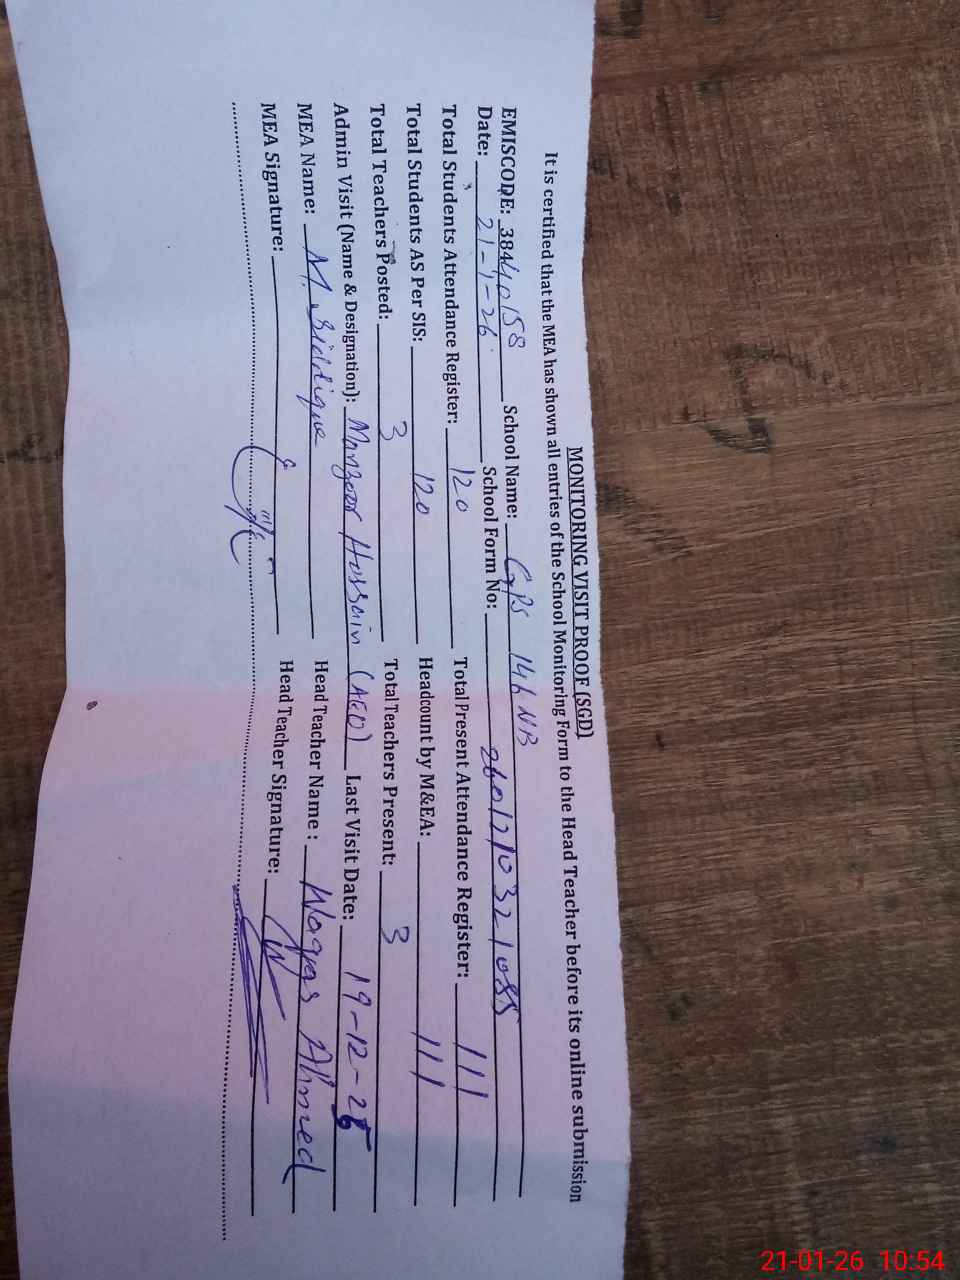 MONITORING VISIT PROOF (SGD)
It is certified that the MEA has shown all entries of the School Monitoring Form to the Head Teacher before its online submission
EMISCODE: 38440158 School Name: GPS 146 NB
Date: 21-1-26 School Form No: 2601210321085
Total Students Attendance Register: 120 Total Present Attendance Register: 111
Total Students AS Per SIS: 120 Headcount by M&EA: 111
Total Teachers Posted: 3 Total Teachers Present: 3
Admin Visit (Name & Designation): Manzoor Hussain (AEO) Last Visit Date: 19-12-25
MEA Name: M. Siddique Head Teacher Name : Waqas Ahmed
MEA Signature: Head Teacher Signature:
21-01-26 10:54